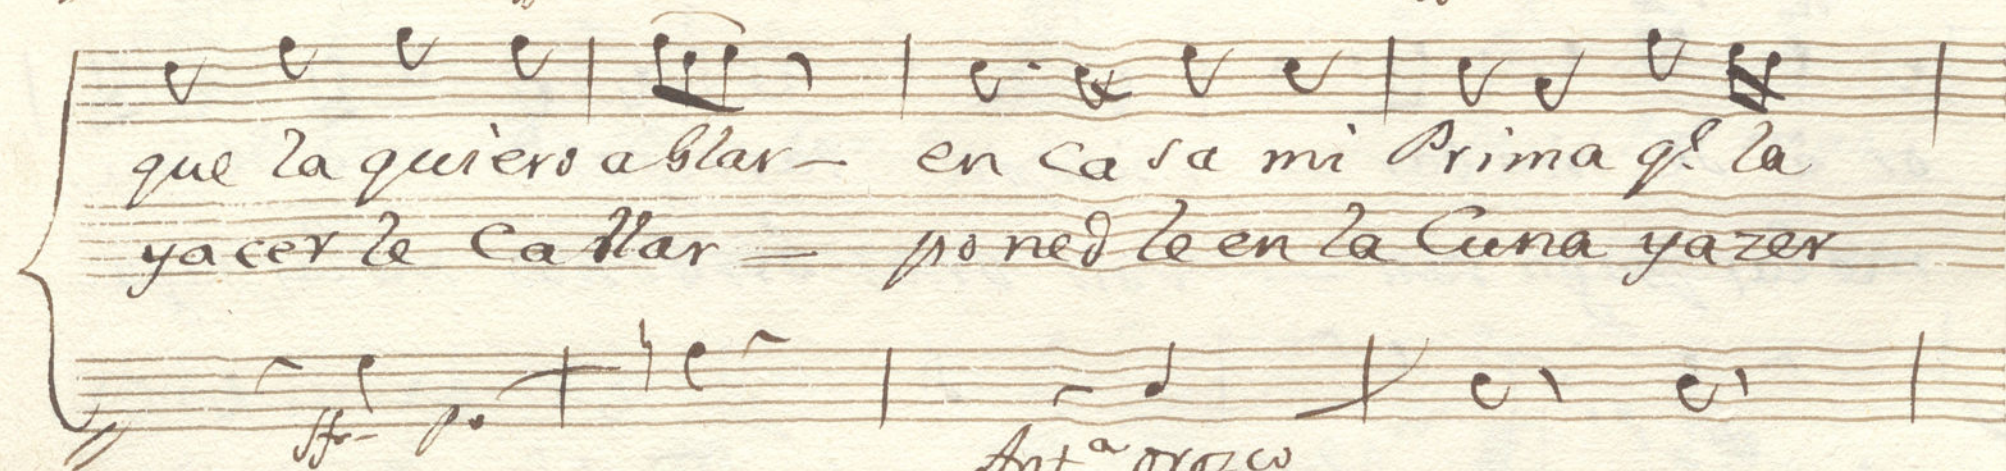 que la quiero ablar - en ca sa mi Prima q.e la
yacer le Callar = poned le en la Cuna yazer
sfo- po
Ant.a orozco